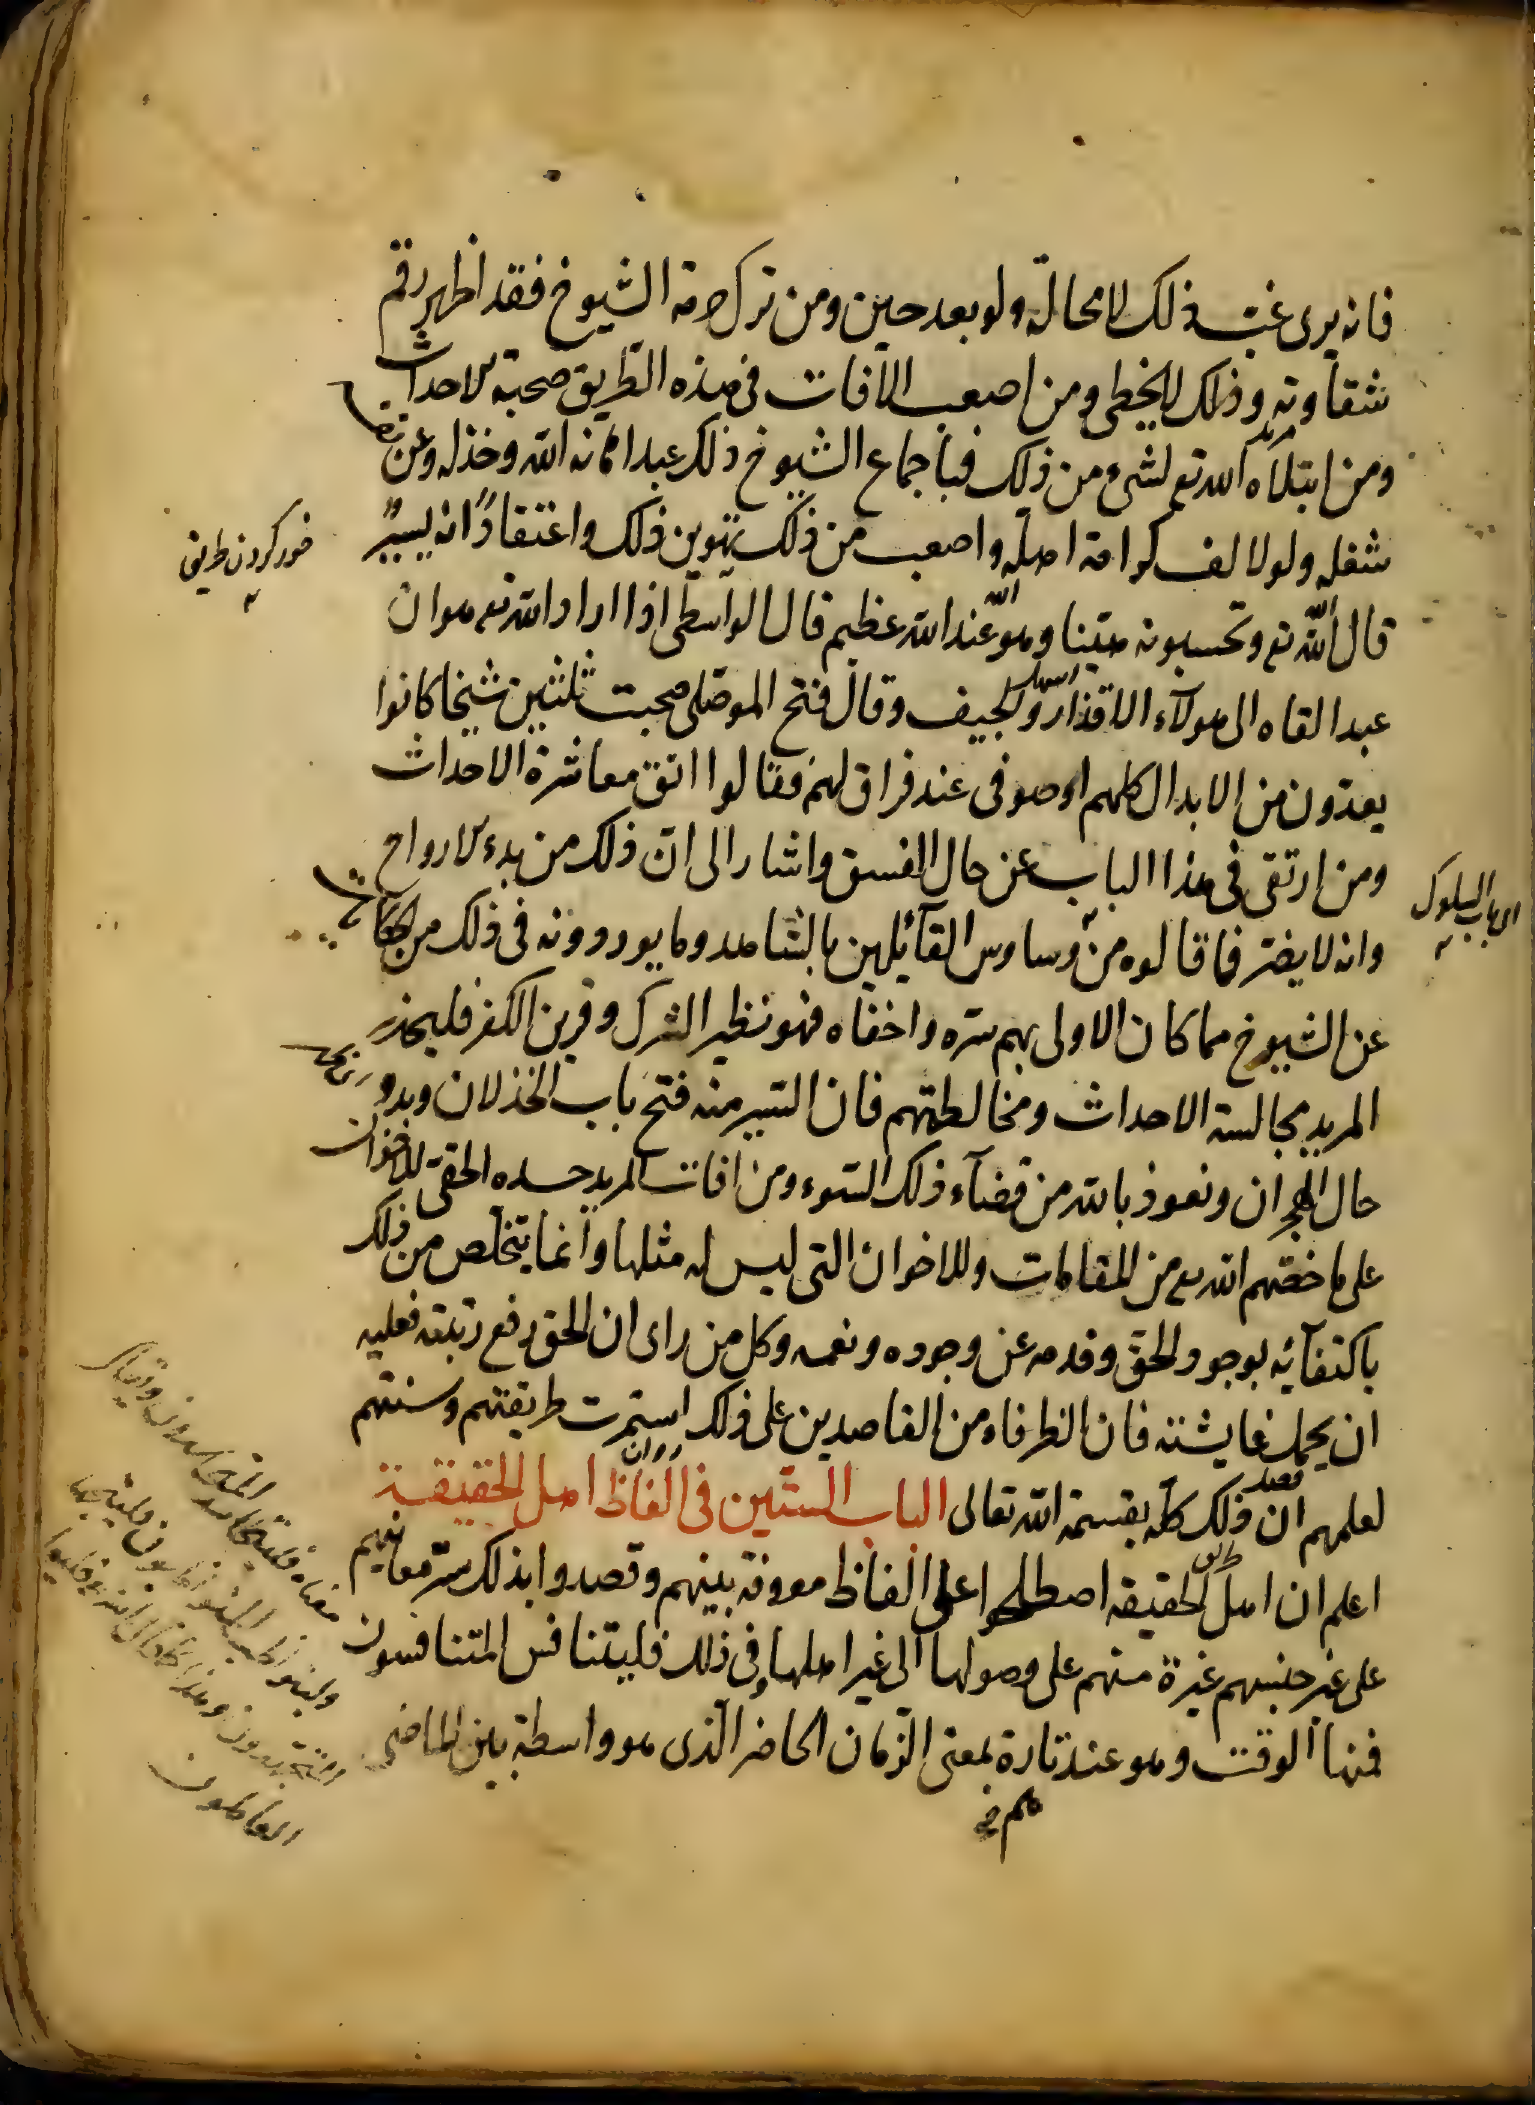 فانه يرى غب ذلك لا محالة ولو بعد حين ومن ترك حرمة الشيوخ فقد اظهر رقم
شقاوته وذلك لا يخطى ومن اصعب الافات فى هذه الطريق صحبة الاحداث
ومن ابتلاه الله تع لشىء من ذلك فباجماع الشيوخ ذلك عبد اهانه الله وخذله وعن نفسه
شغله ولو لالف كرامة اهله واصعب من ذلك تهوين ذلك واعتقاد انه يسير
قال الله تع وتحسبونه هينا وهو عند الله عظيم قال الواسطى اذا اراد الله تع هوان
عبد القاه الى هولآء الاقذار والجيف وقال فتح الموصلى صحبت ثلثين شيخا كانوا
يعدون من الابدال كلهم اوصونى عند فراق لهم فقالوا اتق معاشرة الاحداث
ومن ارتقى فى هذا الباب عن حال الفسق واشار الى ان ذلك من بدء الارواح
وانه لا يضر فما قالوه من وساوس القآئلين بالشاهد وما يوردونه فى ذلك من الحكايات
عن الشيوخ مما كان الاولى بهم ستره واخفاه فهو نظير الشرك وقرين الكفر فليحذر
المريد مجالسة الاحداث ومخالطتهم فان اليسير منه فتح باب الخذلان وبدو
حال الهجران ونعوذ بالله من قضآء ذلك السوء ومن افات المريد حسده الحقى للاخوان
على ما خصهم الله تع من المقامات وللاخوان التى ليس له مثلها وانما يتخلص من ذلك
باكتفآئه بوجود الحق وقدمه عن وجوده ونعمه وكل من راى ان الحق رفع رتبته فعليه
ان يحمل غاشيته فان الظرفاء من القاصدين على ذلك استمرت طريقتهم وسنتهم
لعلمهم ان ذلك كله بقسمة الله تعالى الباب الستين فى الفاظ اهل الحقيقة
اعلم ان اهل الحقيقه اصطلحوا على الفاظ معروفة بينهم وقصدوا بذلك ستر معانيهم
على غير جنسهم غيرة منهم على وصولها الى غير اهلها وفى ذلك فليتنافس المتنافسون
فمنها الوقت وهو عند تارة بمعنى الزمان الحاضر الذى هو واسطة بين الماضى
خورد كردن طريق
ارباب السلوك
العاملون